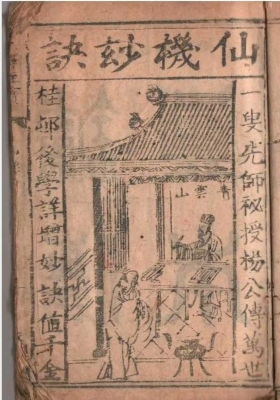 仙機妙訣
一叟先師秘授楊公傳萬世
青雲山
桂邨後學詳增妙訣值千金